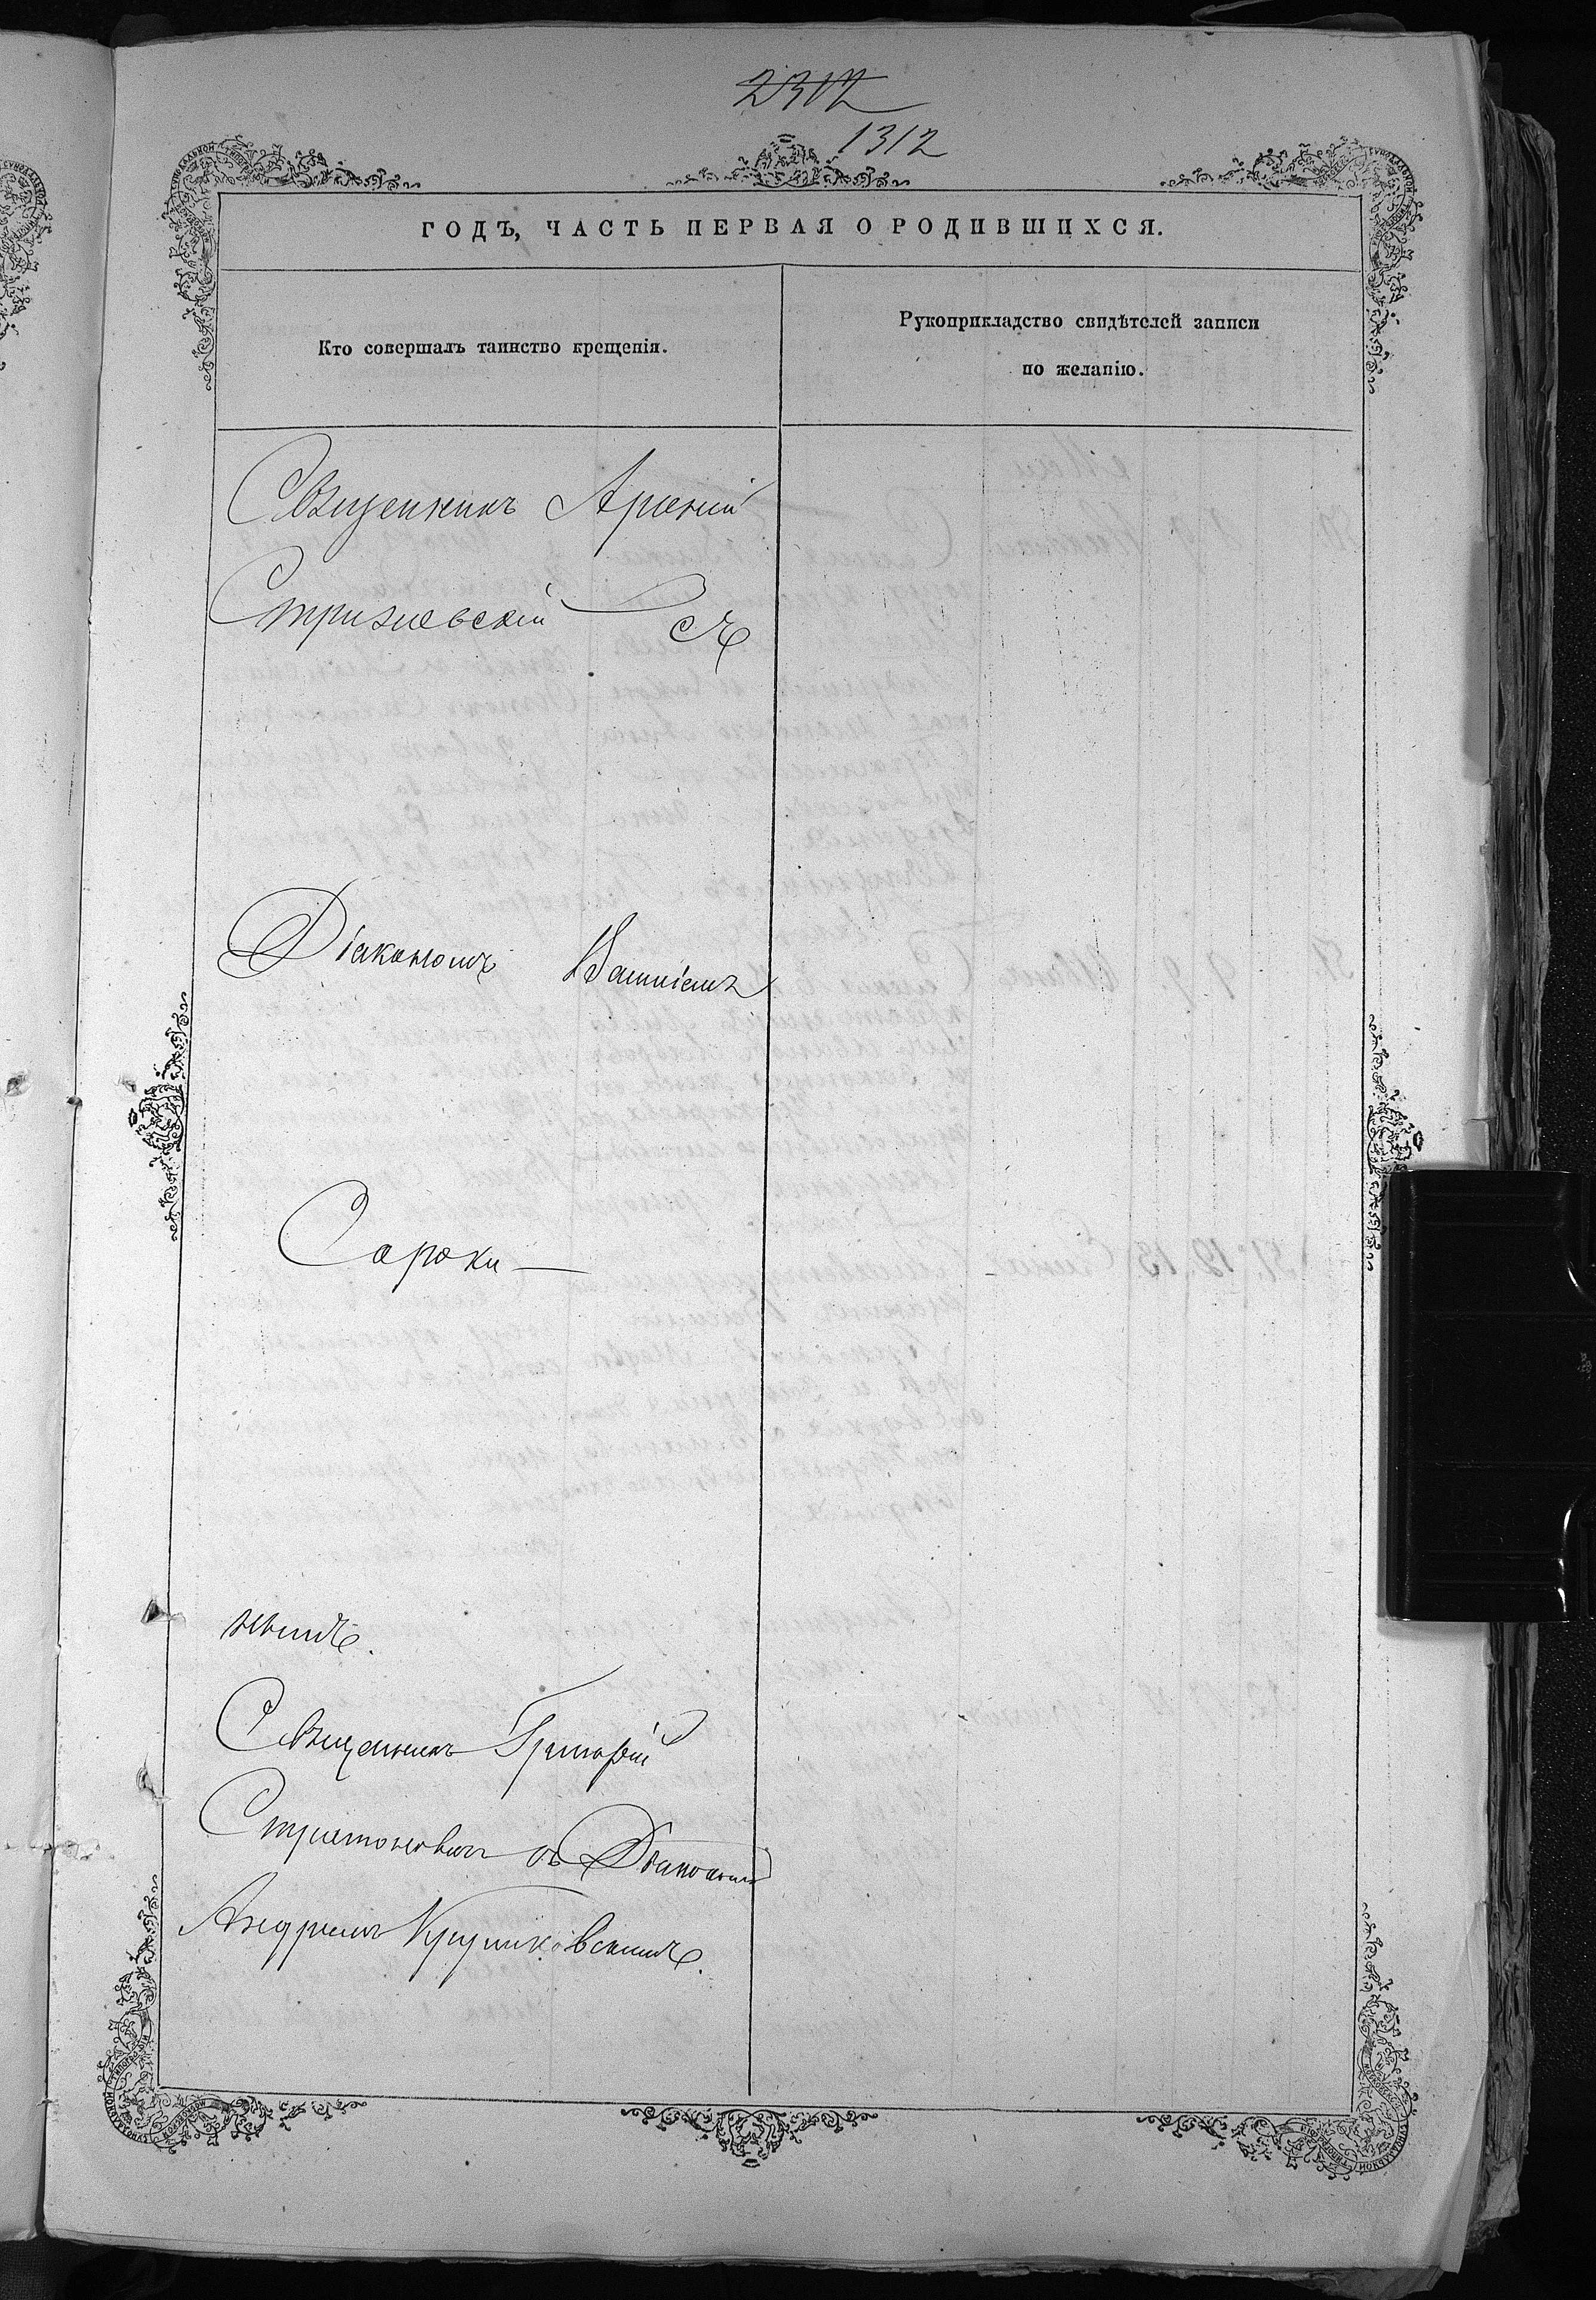 2312
1312
ГОДЪ, ЧАСТЬ ПЕРВАЯ О РОДИВШИХСЯ.
Кто совершалъ таинство крещенія.
Рукоприкладство свидѣтелей записи
по желанію.
Священникъ Арсеній
Стрижевскій съ
Діакономъ
Сороки—
нымъ.
Священникъ Григорій
съ Діакономъ
Андреемъ